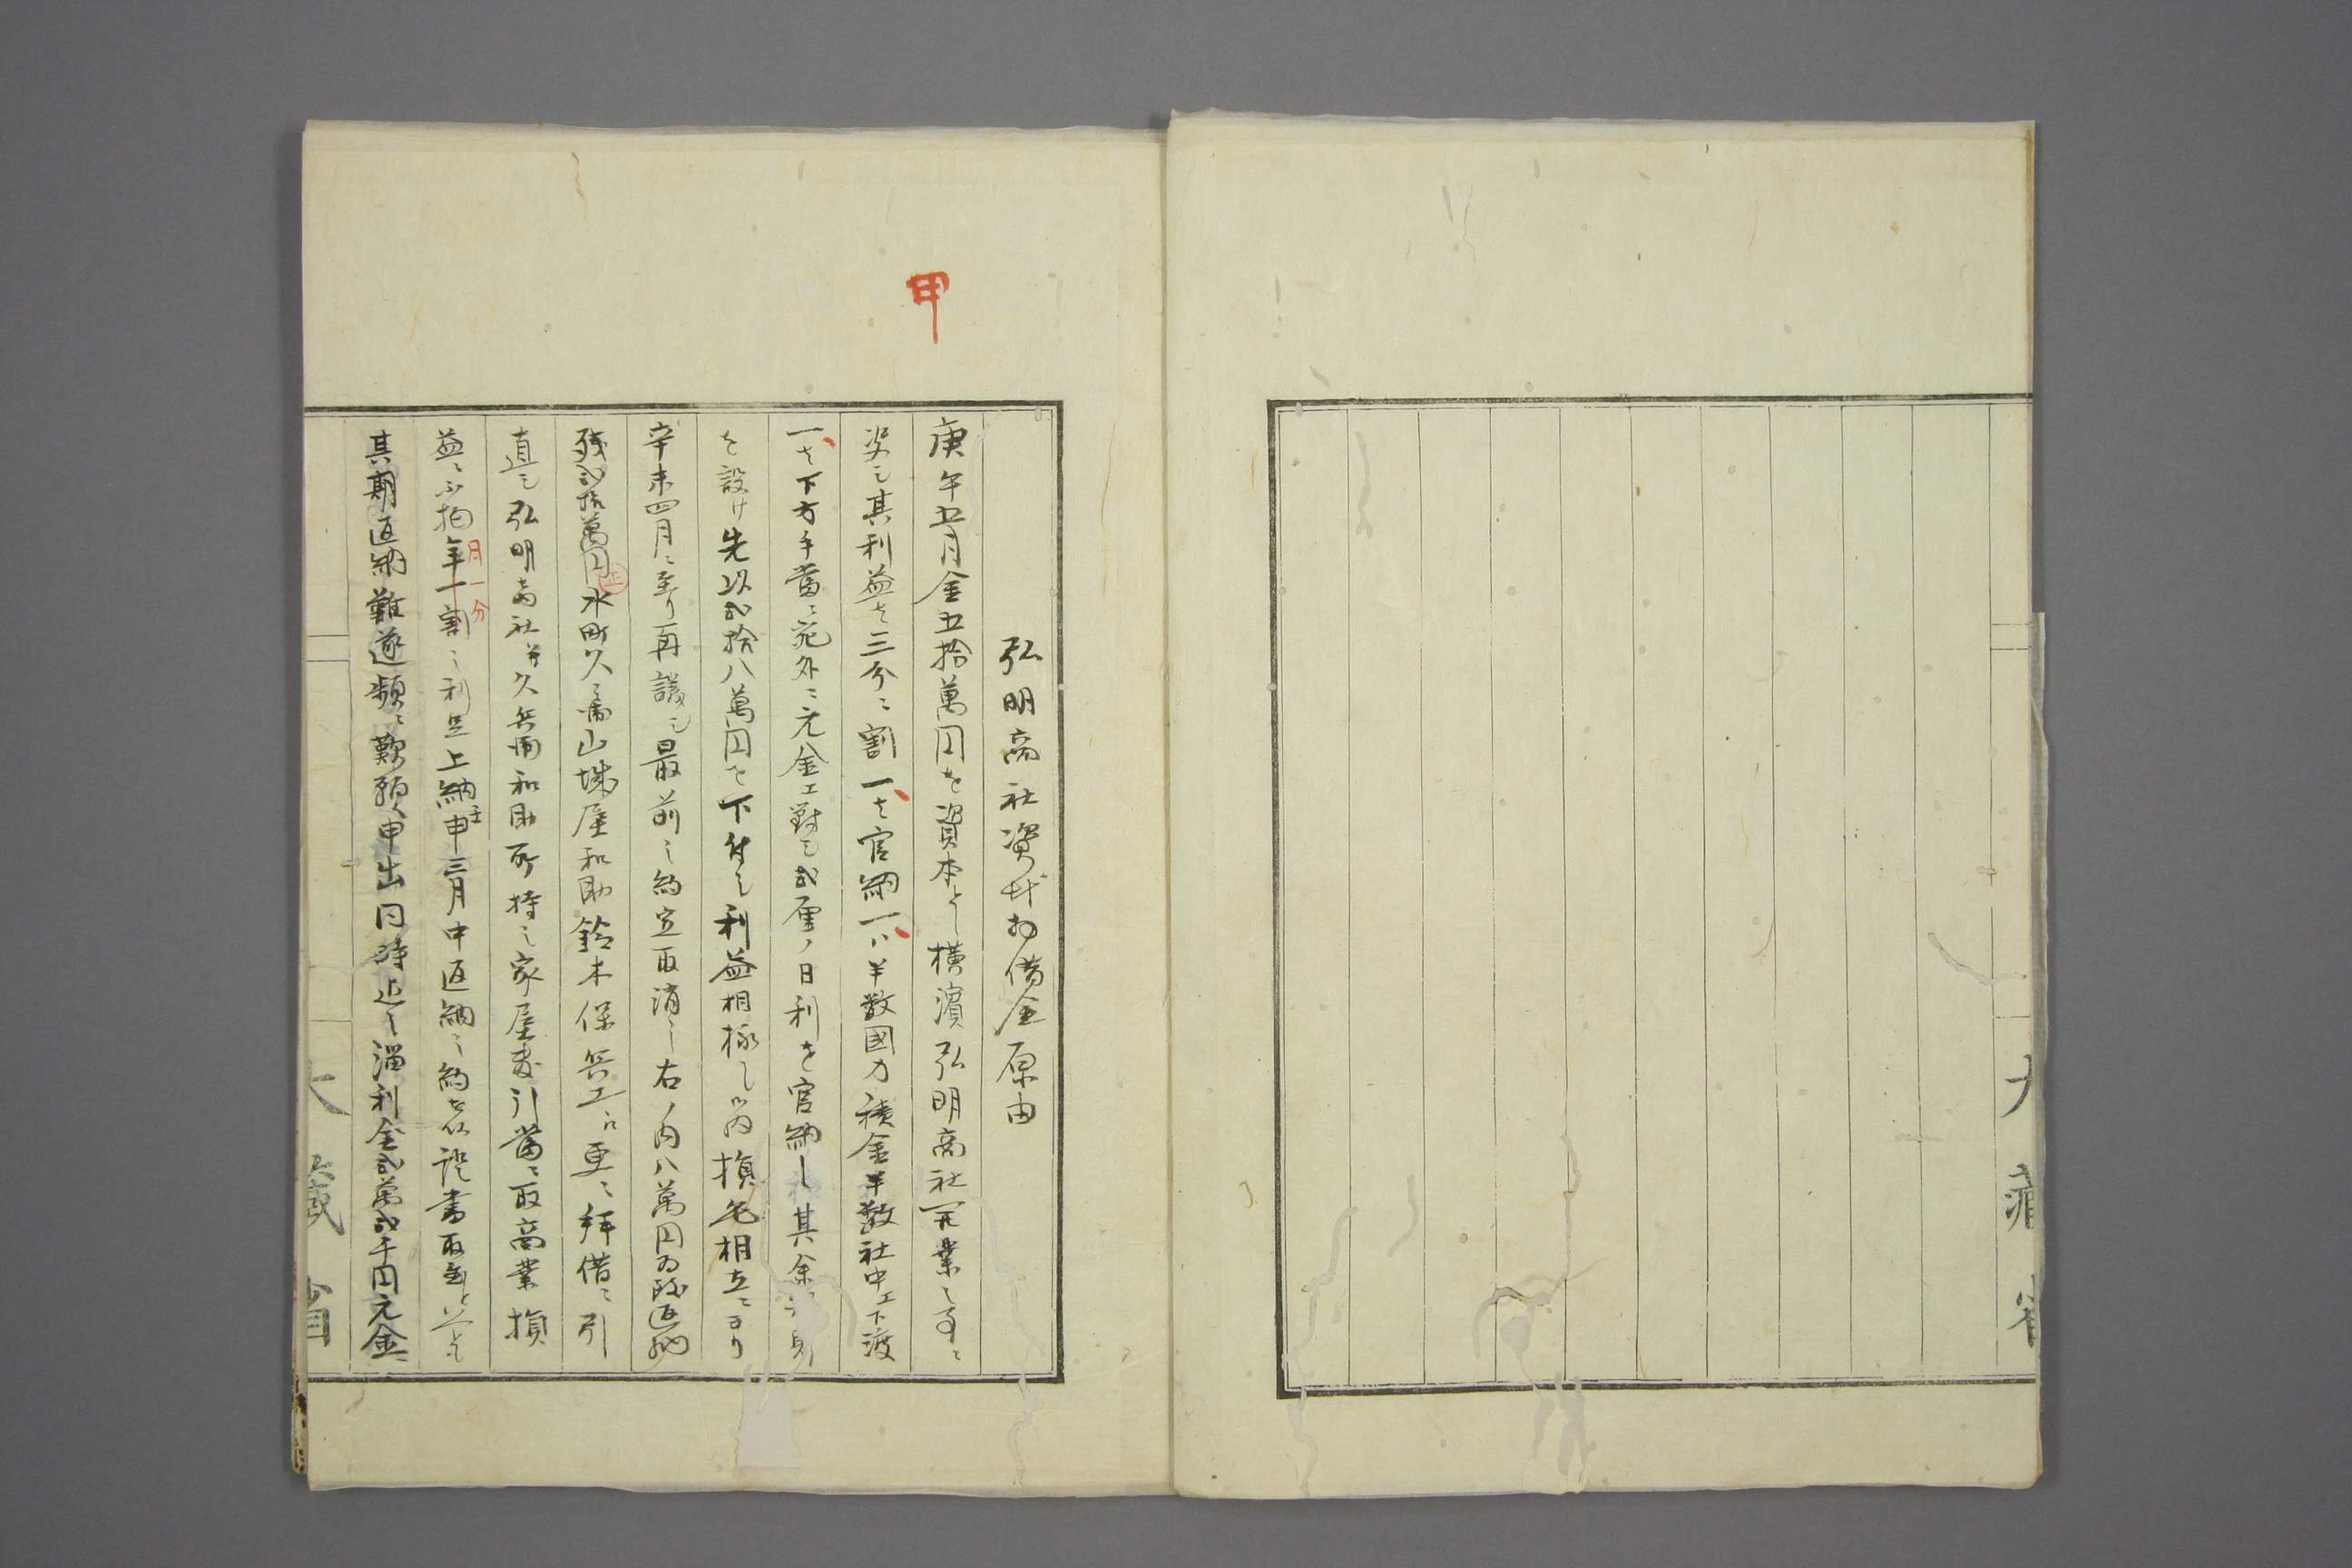 甲
弘明商社資本拝借金原由
庚午五月金五拾萬円を資本とし横濱弘明商社開業し
其利益を三分ニ割一を官納一ハ半数國力積金半数社中エ下渡
一を下方手當ニ充外ニ元金エ對し弐厘ノ日利を官納し其余
を設け先以弐拾八萬円を下付し利益相極し為損毛相立
辛未四月ニ至り再議し最前之約定取消し右ノ内八萬円為致返納
残弐拾萬円水町久兵衛山城屋和助鈴木保兵エ江更ニ拝借ニ引
直し弘明商社并久兵衛和助所持之家屋等引當ニ取商業損
益ニ不拘年一割之利足上納壬申三月中返納之約を以證書取
月一分
其期返納難遂頻ニ歎願申出同時迄之溜利金弐萬弐千円元金
大藏省
大藏省